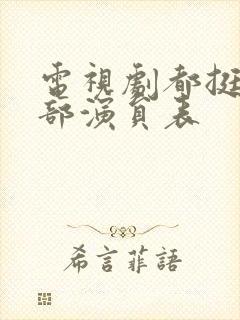 電視劇都挺
部演員表
希言菲語